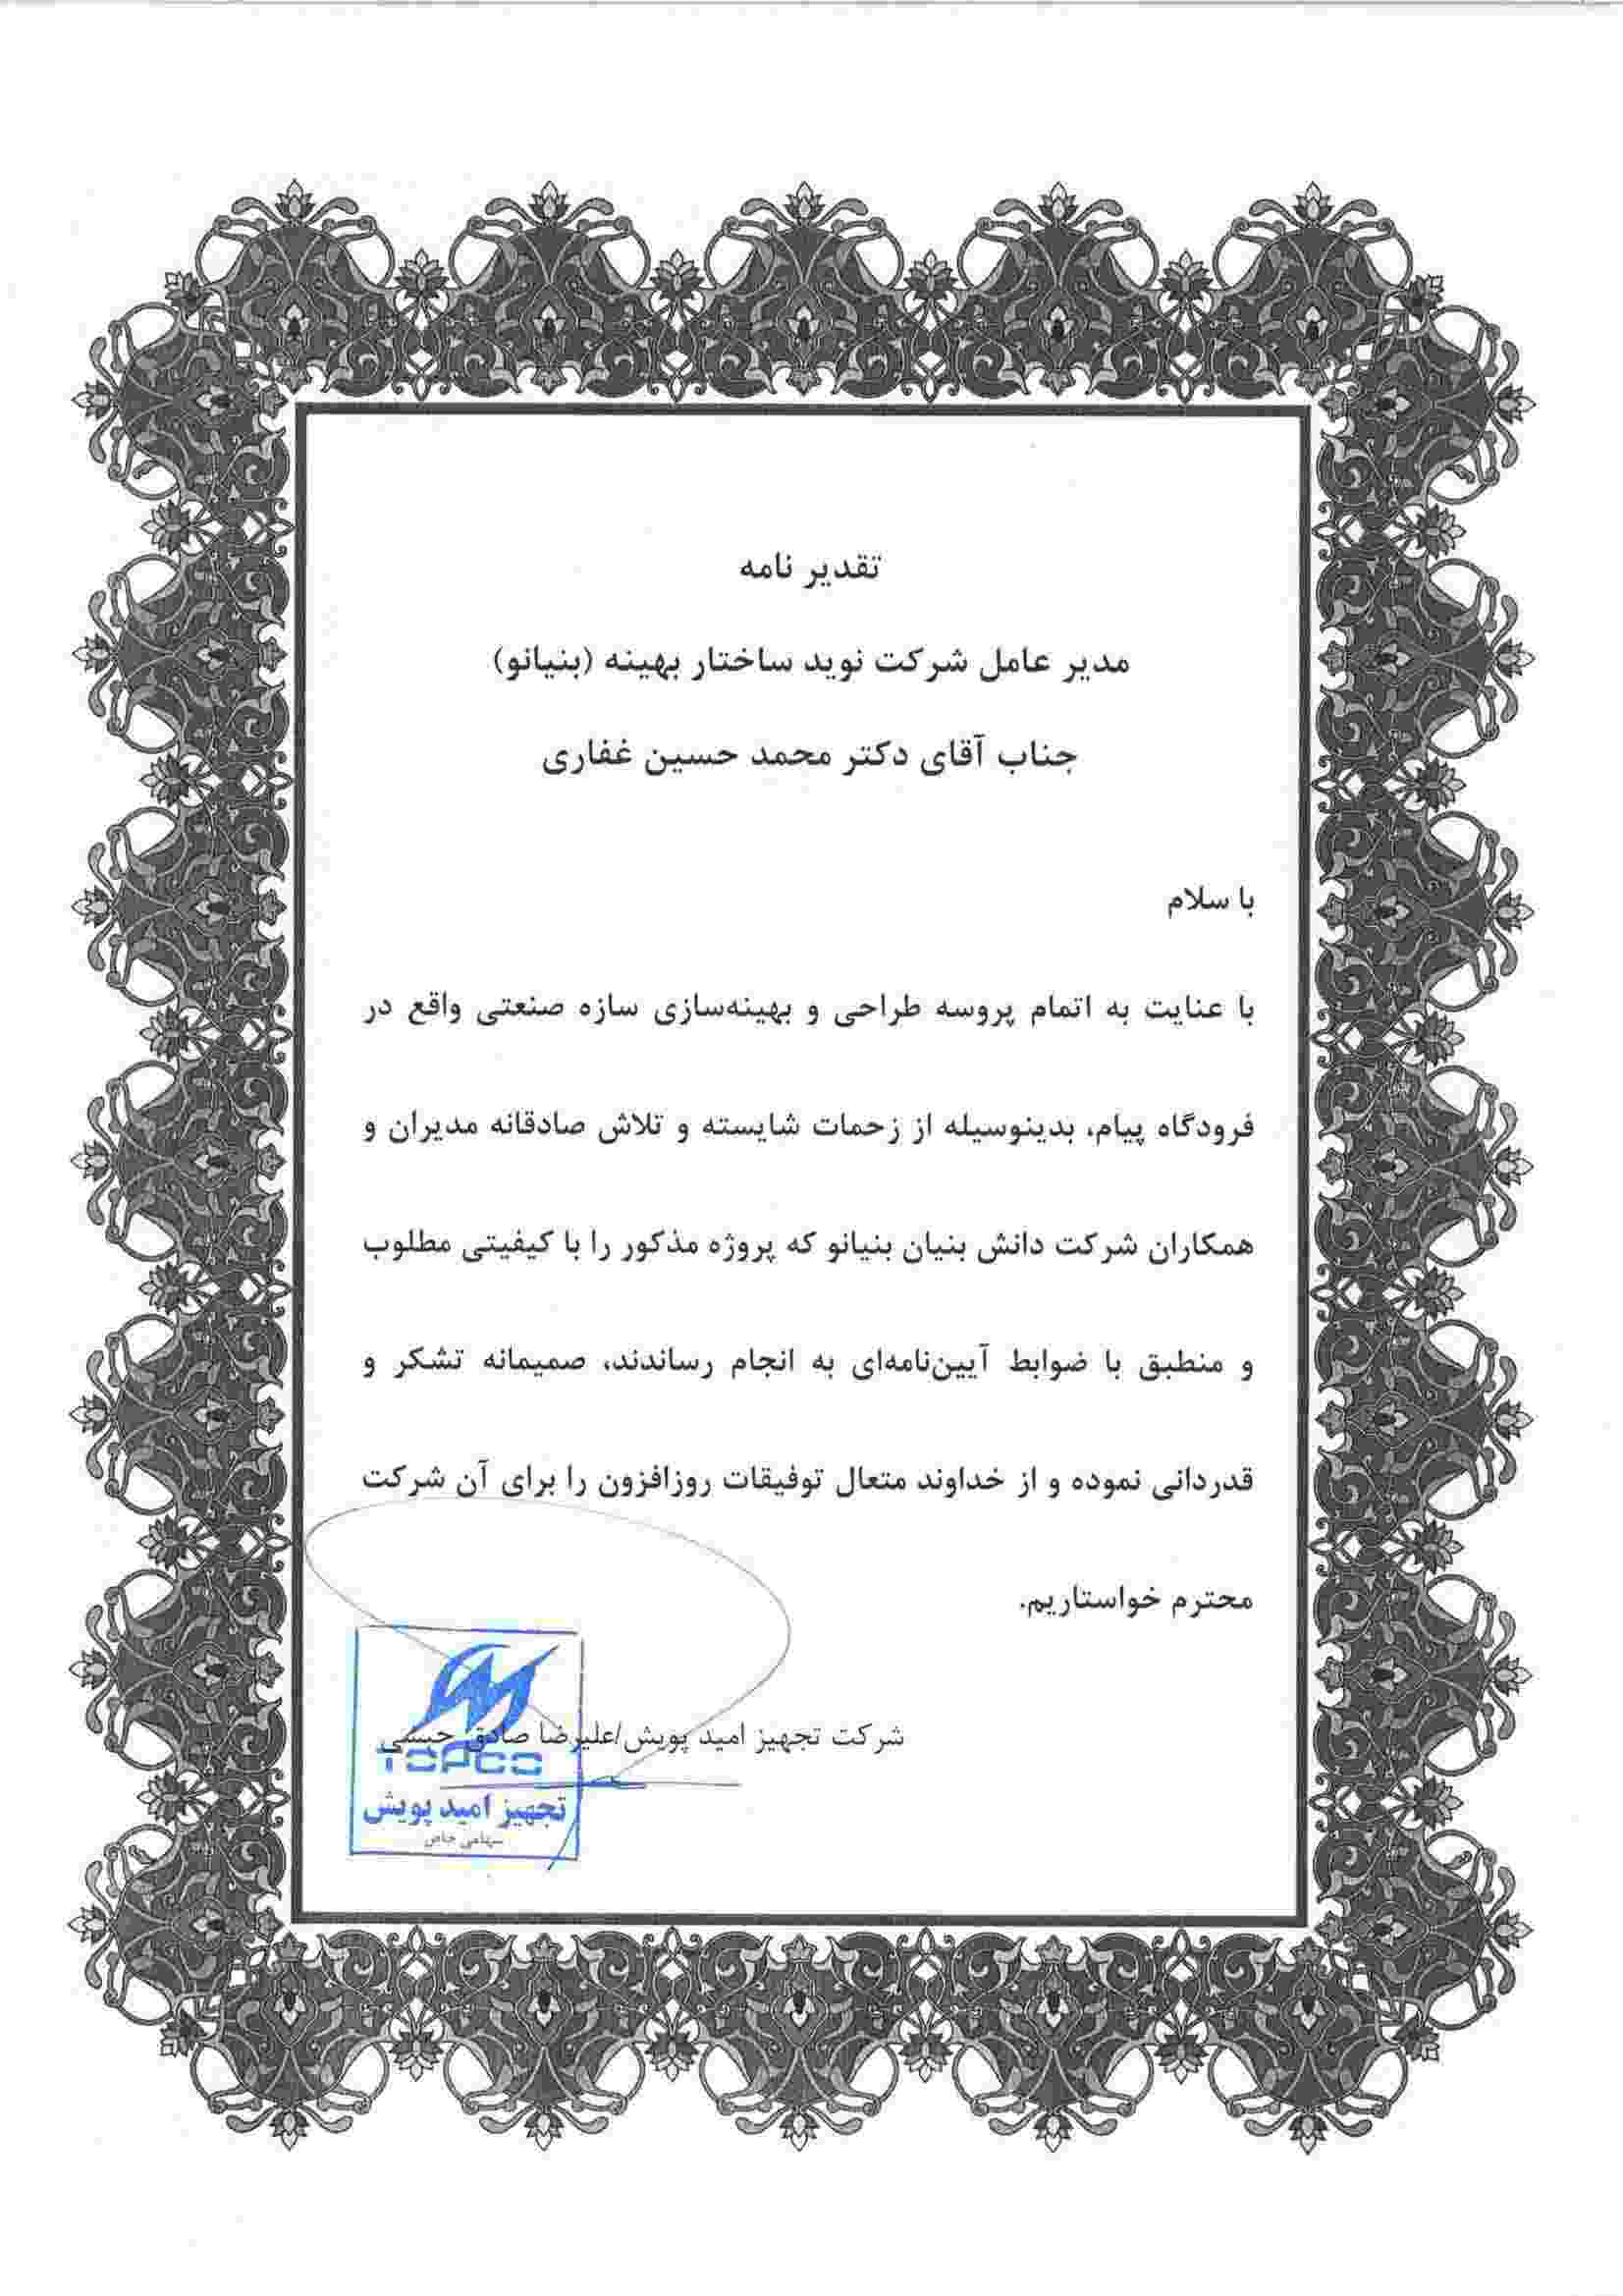 تقدیر نامه
مدیر عامل شرکت نوید ساختار بهینه (بنیانو)
جناب آقای دکتر محمد حسین غفاری
با سلام
با عنایت به اتمام پروسه طراحی و بهینه‌سازی سازه صنعتی واقع در
فرودگاه پیام، بدینوسیله از زحمات شایسته و تلاش صادقانه مدیران و
همکاران شرکت دانش بنیان بنیانو که پروژه مذکور را با کیفیتی مطلوب
و منطبق با ضوابط آیین‌نامه‌ای به انجام رساندند، صمیمانه تشکر و
قدردانی نموده و از خداوند متعال توفیقات روزافزون را برای آن شرکت
محترم خواستاریم.
شرکت تجهیز امید پویش/علیرضا صادق
TOPCO
تجهیز امید پویش
سهامی خاص